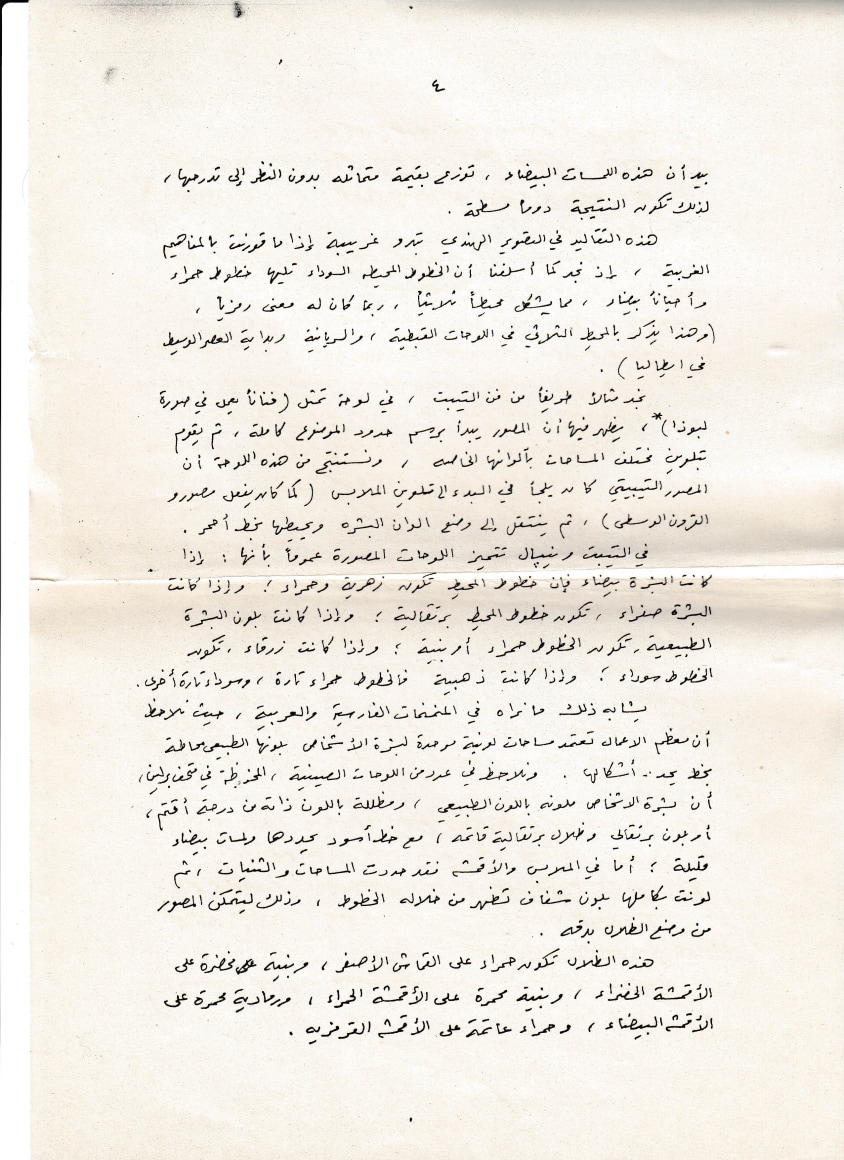 ٤
بيد أن هذه اللمسات البيضاء ، توزع بقيمة متماثله بدون النظر إلى تدرجها ،
لذلك تكون النتيجة دوماً مسطحة .
هذه التقاليد في التصوير الهندي تبدو غريبة إذا ما قورنت بالمفاهيم
الغربية ، إذ نجد كما أسلفنا أن الخطوط المحيطه السوداء تليها خطوط حمراء
وأحياناً بيضاء ، مما يشكل محيطاً ثلاثياً ، ربما كان له معنى رمزياً ،
(وهذا يذكر بالمحيط الثلاثي في اللوحات القبطية ، والسريانية وبداية العصر الوسيط
في ايطاليا ) .
نجد مثالاً طريفاً من فن التيبت ، في لوحة تمثل (فناناً يعمل في صورة
لبوذا)* ، يظهر فيها أن المصور يبدأ برسم حدود الموضوع كاملة ، ثم يقوم
بتلوين مختلف المساحات بألوانها الخاصه ، ونستنتج من هذه اللوحة أن
المصور التيبيتي كان يلجأ في البدء الى تلوين الملابس (كما كان يفعل مصورو
القرون الوسطى) ، ثم ينتقل إلى وضع الوان البشره ويحيطها بخط أحمر .
في التيبت ونيپال تتميز اللوحات المصورة عموماً بأنها : إذا
كانت البشرة بيضاء فإن خطوط المحيط تكون زهرية وحمراء ؛ وإذا كانت
البشرة صفراء ، تكون خطوط المحيط برتقالية ؛ وإذا كانت بلون البشرة
الطبيعية ، تكون الخطوط حمراء أو بنية ؛ وإذا كانت زرقاء ، تكون
الخطوط سوداء ؛ وإذا كانت ذهبية فالخطوط حمراء تارة ، وسوداء تارة أخرى .
يشابه ذلك ما نراه في المنمنمات الفارسية والعربية ، حيث نلاحظ
أن معظم الاعمال تعتمد مساحات لونية موحدة لبشرة الأشخاص بلونها الطبيعي محاطة
بخط يحدد أشكالها . ونلاحظ في عدد من اللوحات الصينية ، المحفوظة في متحف برلين ،
أن بشرة الاشخاص ملونه باللون الطبيعي ، ومظللة باللون ذاته من درجة أقتم ،
أو بلون برتقالي وظلال برتقالية قاتمه ، مع خط أسود يحددها ولمسات بيضاء
قليلة ؛ أما في الملابس والأقمشه فقد حددت المساحات والثنيات ، ثم
لونت بكاملها بلون شفاف تظهر من خلاله الخطوط ، وذلك ليتمكن المصور
من وضع الظلال بدقه .
هذه الظلال تكون حمراء على القماش الأصفر ، وبنية مخضرة على
الأقمشة الخضراء ، وبنية محمرة على الأقمشة الحمراء ، ورمادية محمرة على
الأقمشه البيضاء ، وحمراء عاتمة على الأقمشه القرمزيه .